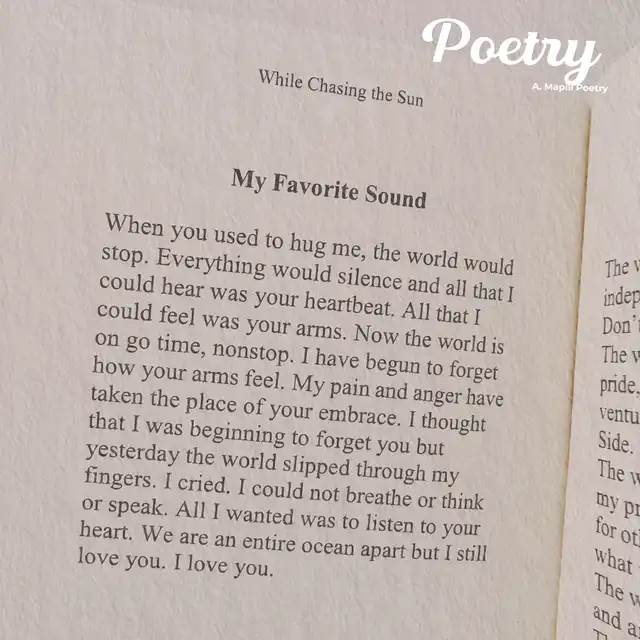 Poetry
A. Mapill Poetry
While Chasing the Sun
My Favorite Sound
When you used to hug me, the world would
stop. Everything would silence and all that I
could hear was your heartbeat. All that I
could feel was your arms. Now the world is
on go time, nonstop. I have begun to forget
how your arms feel. My pain and anger have
taken the place of your embrace. I thought
that I was beginning to forget you but
yesterday the world slipped through my
fingers. I cried. I could not breathe or think
or speak. All I wanted was to listen to your
heart. We are an entire ocean apart but I still
love you. I love you.
The
Don't
The
pride,
Side.
The
my
for
what
The
and